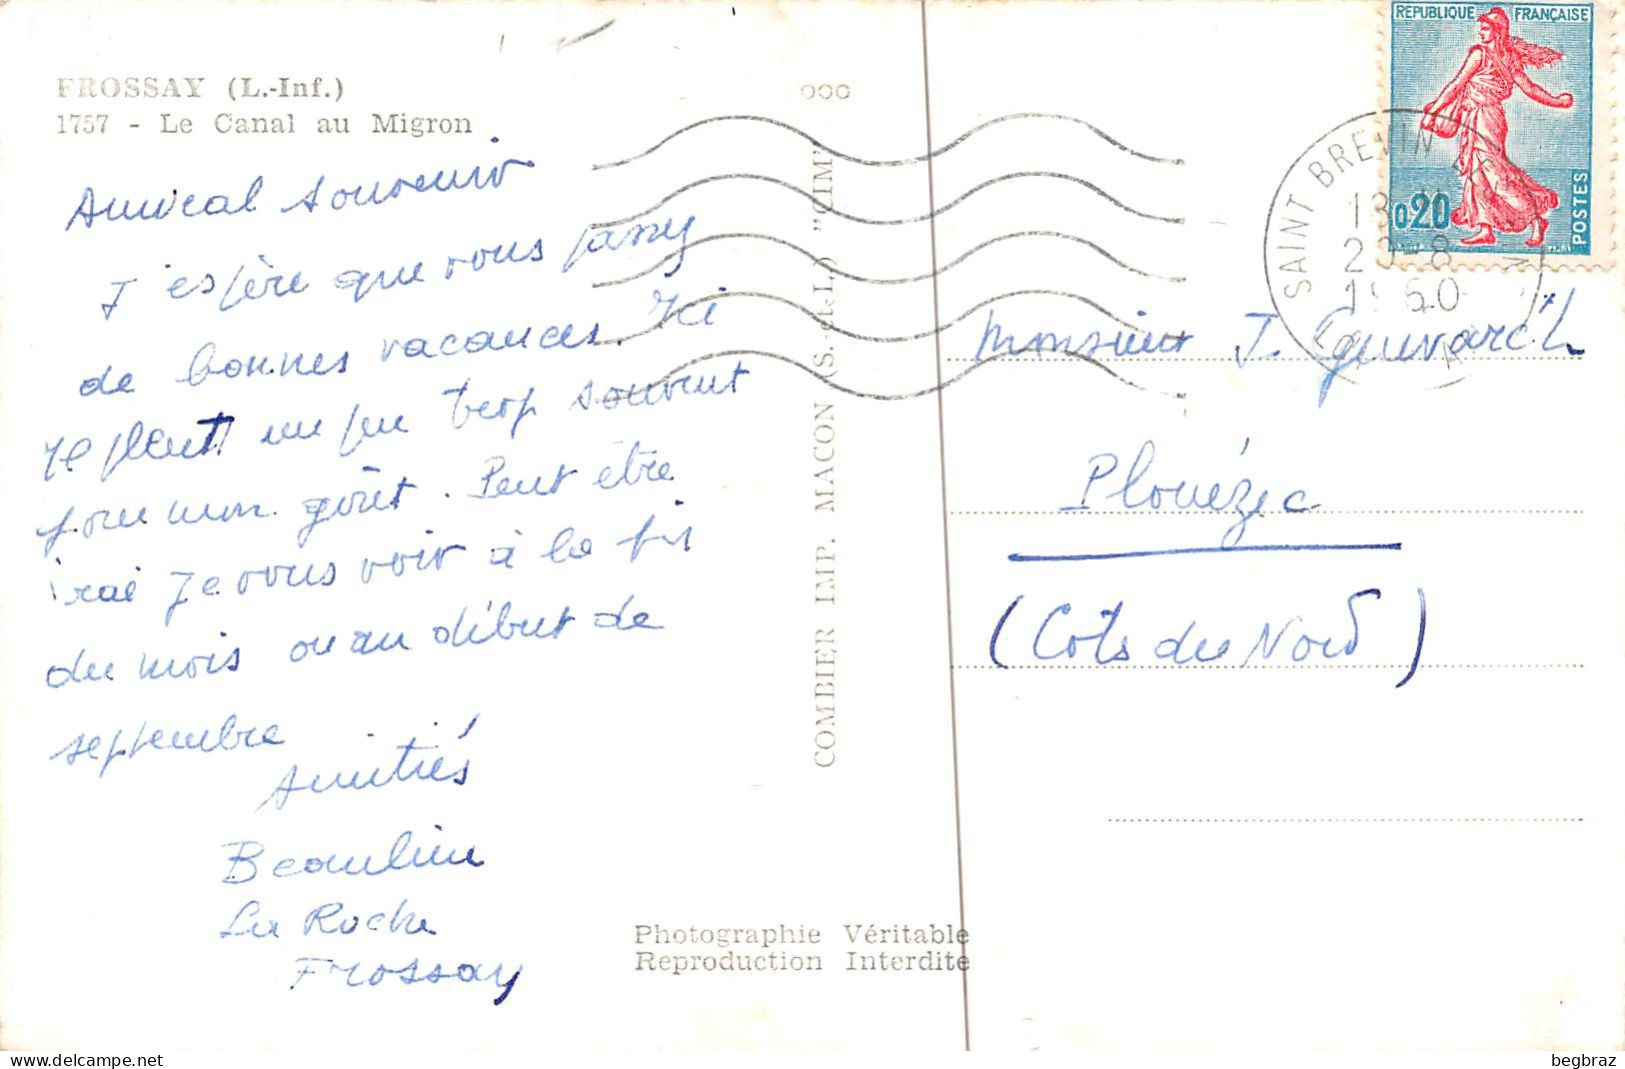 FROSSAY (L.-Inf.)
1757 - Le Canal au Migron
Amical souvenir
J'espère que vous passez
de bonnes vacances. Ici
Il pleut un peu trop souvent
pour mon goût. Peut être
irai Je vous voir à la fin
du mois ou au début de
septembre
Amitiés
Beaulieu
La Roche
Frossay
Photographie Véritable
Reproduction Interdite
COMBIER IMP. MACON (S.-et-L.) "CIM"
REPUBLIQUE FRANÇAISE
0,20
POSTES
SAINT BREVIN
1960
Monsieur J. Guivarc'h
Plouézec
(Cots du Nord)
begbraz